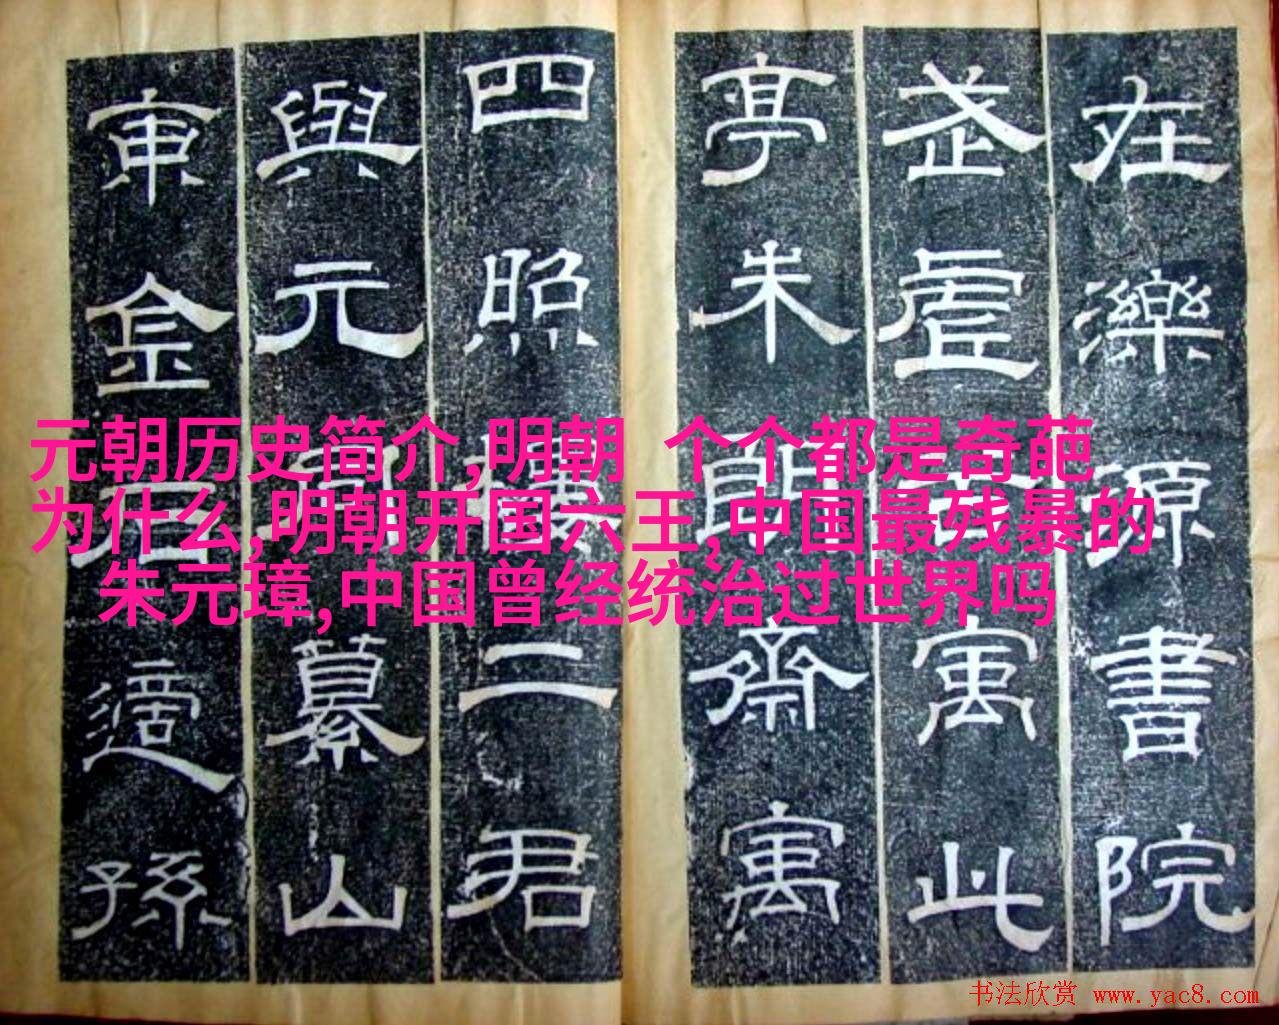 元朝历史简介,明朝 个个都是奇葩
为什么,明朝开国六王,中国最残暴的
朱元璋,中国曾经统治过世界吗
在濼源書院
武虛寓此
亭朱朗齋寓
四照樓二君
與元同纂山
東金石適孫
书法欣赏 www.yac8.com